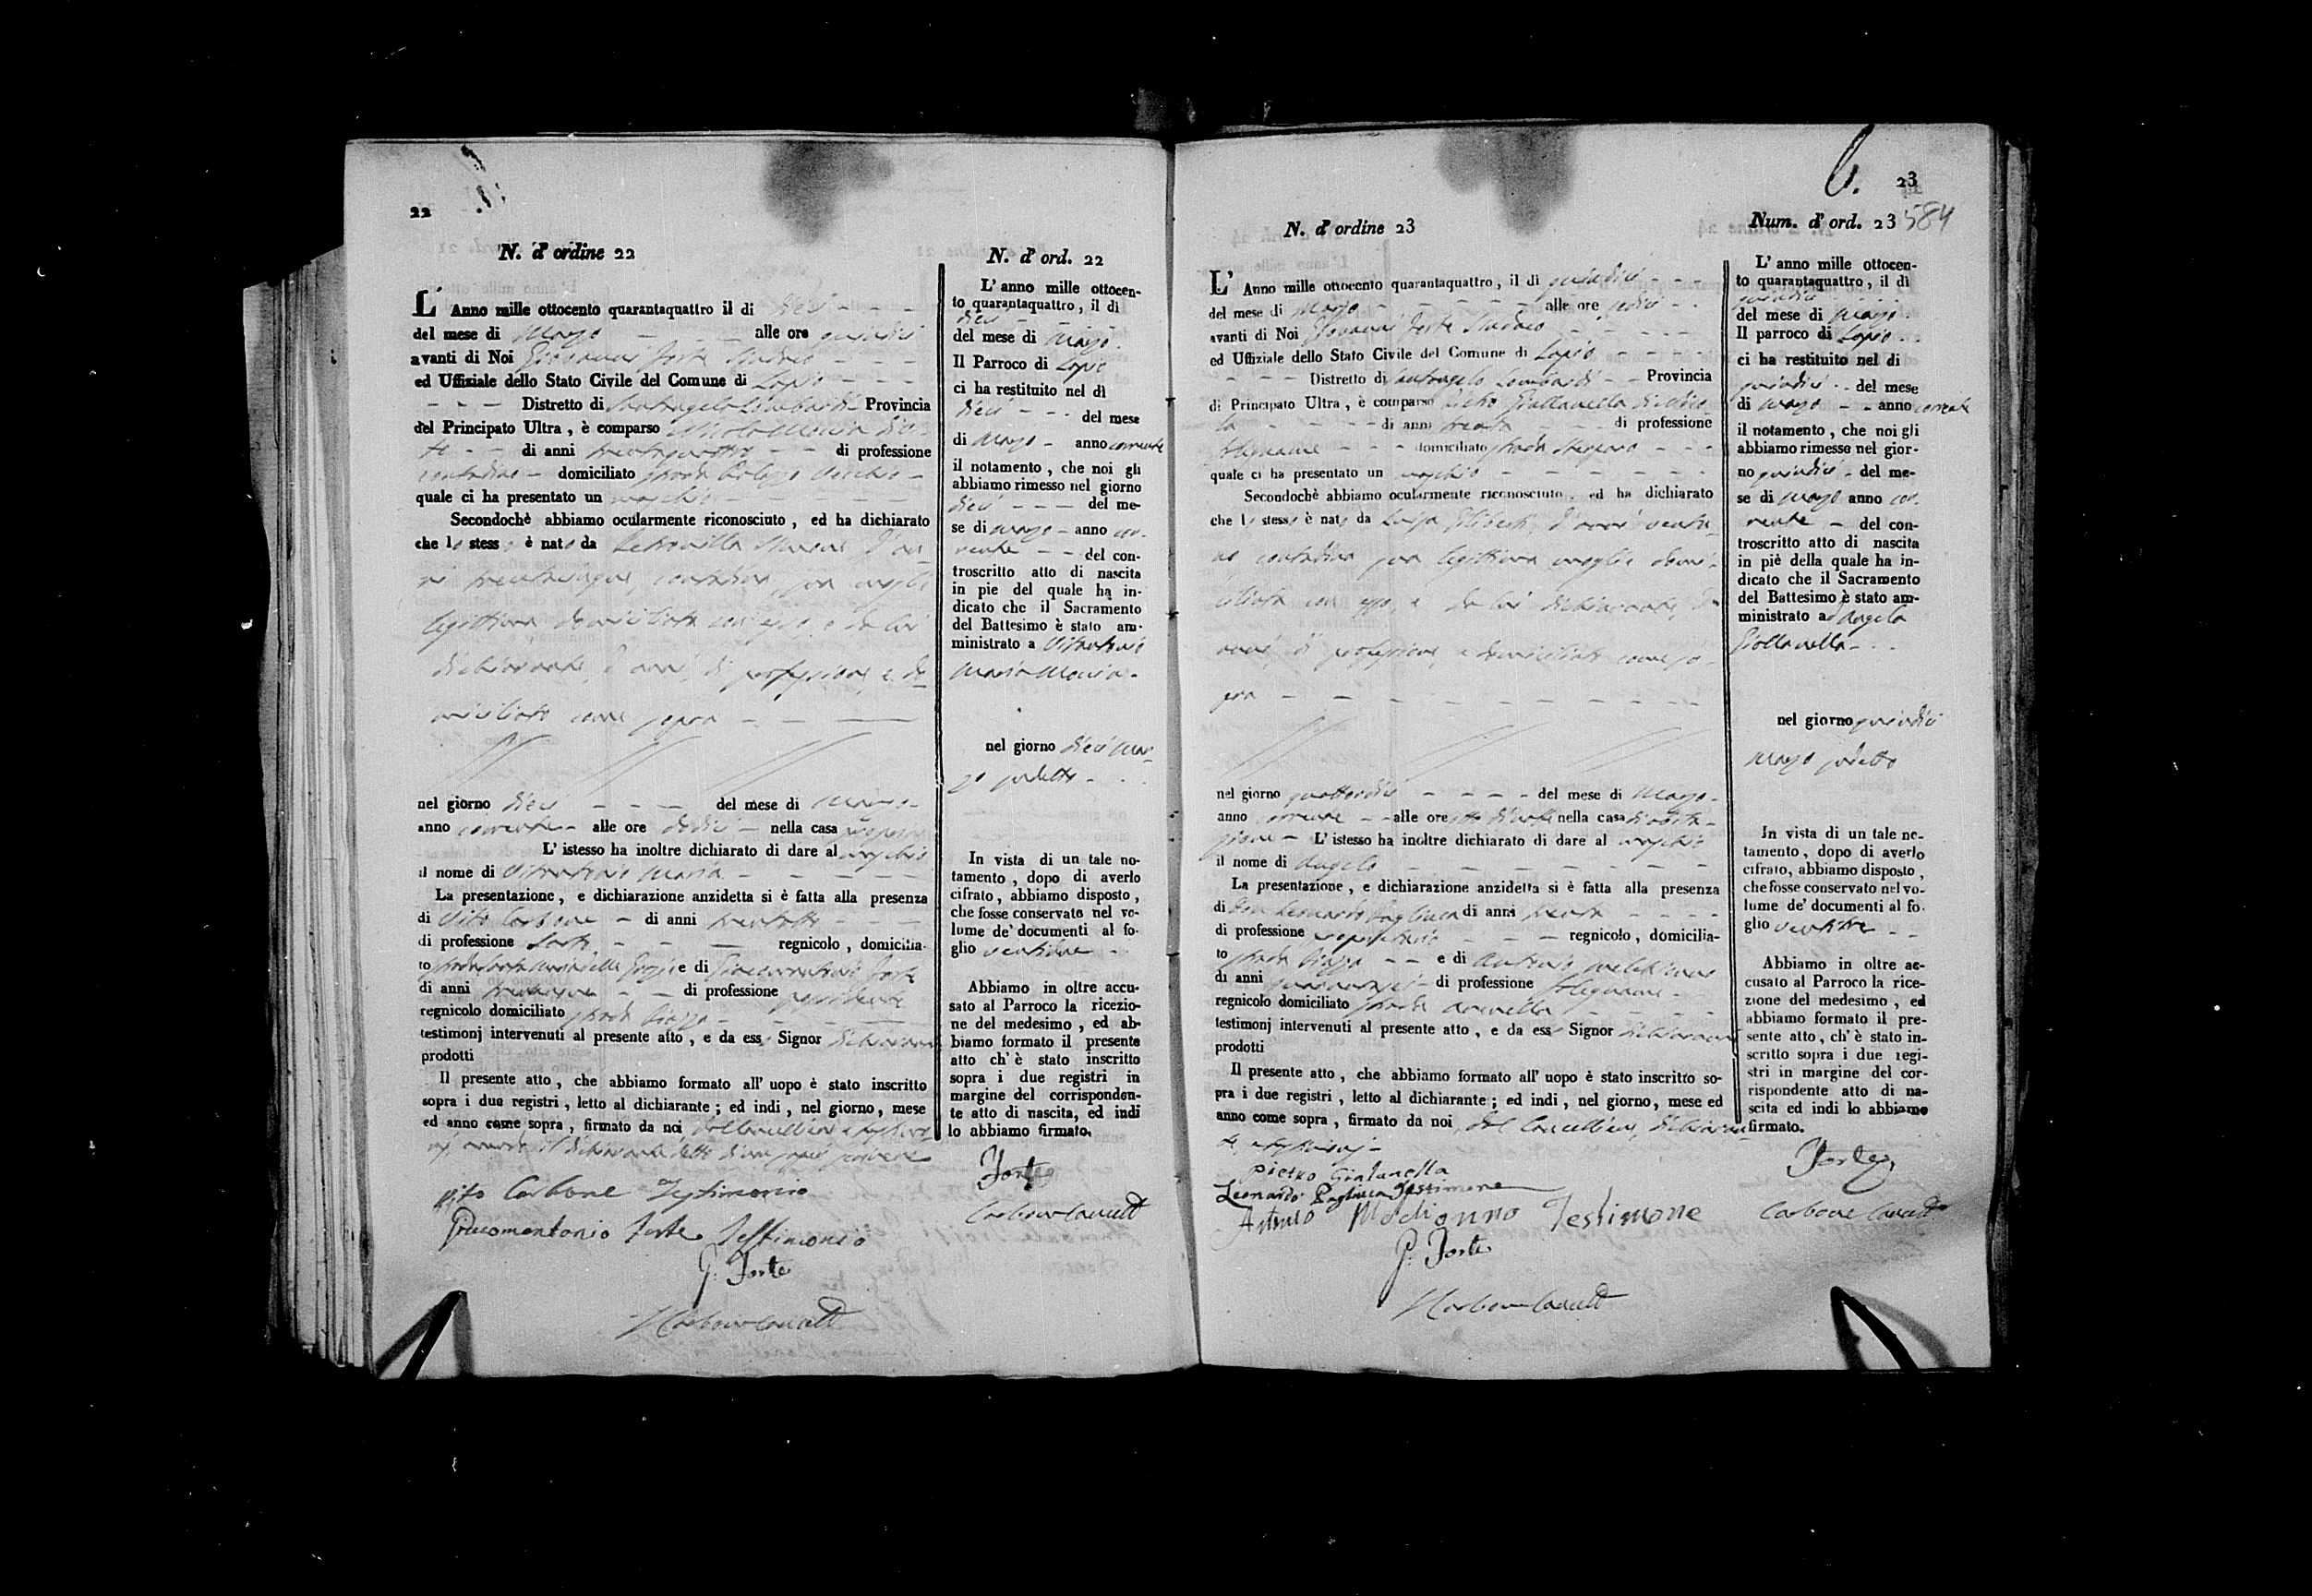 22
N. d' ordine 22
L' Anno mille ottocento quarantaquattro il di dieci
del mese di Marzo alle ore quindici
avanti di Noi Giovanni Forte Sindaco
ed Uffiziale dello Stato Civile del Comune di Lapio
Distretto di Santangelo Lombardi Provincia
del Principato Ultra, è comparso Nicola
di anni trentaquattro di professione
contadino domiciliato strada Palazzo Vecchio
quale ci ha presentato un maschio
Secondochè abbiamo ocularmente riconosciuto, ed ha dichiarato
che lo stesso è nato da Petronilla d'an
ni trentacinque, contadina sua moglie
legittima domiciliata con esso e da lui
dichiarante, d'anni, di professione, e do
miciliato come sopra
nel giorno dieci del mese di Marzo
anno corrente alle ore dodici nella casa
L' istesso ha inoltre dichiarato di dare al maschio
il nome di Vitantonio Maria
La presentazione, e dichiarazione anzidetta si è fatta alla presenza
di Vito Carbone di anni trentotto
di professione sarto regnicolo, domicilia-
to strada Santa Maria delle Grazie e di Giacomantonio Forte
di anni di professione possidente
regnicolo domiciliato strada Piazza
testimonj intervenuti al presente atto, e da esso Signor dichiarante
prodotti
Il presente atto, che abbiamo formato all' uopo è stato inscritto
sopra i due registri, letto al dichiarante; ed indi, nel giorno, mese
ed anno come sopra, firmato da noi dal Cancelliere e testimo
nj, avendo il dichiarante detto di non sapere scrivere
Vito Carbone Testimonio
Giacomantonio Forte Testimonio
G. Forte
Carbone Cancell
N. d' ord. 22
L' anno mille ottocen-
to quarantaquattro, il di
dieci
del mese di Marzo
Il Parroco di Lapio
ci ha restituito nel di
dieci del mese
di Marzo anno corrente
il notamento, che noi gli
abbiamo rimesso nel giorno
dieci del me-
se di Marzo anno cor-
rente del con-
troscritto atto di nascita
in pie del quale ha in-
dicato che il Sacramento
del Battesimo è stato am-
ministrato a Vitantonio
Maria
nel giorno dieci Mar
zo sudetto
In vista di un tale no-
tamento, dopo di averlo
cifrato, abbiamo disposto,
che fosse conservato nel vo-
lume de' documenti al fo-
glio ventidue
Abbiamo in oltre accu-
sato al Parroco la ricezio-
ne del medesimo, ed ab-
biamo formato il presente
atto ch' è stato inscritto
sopra i due registri in
margine del corrisponden-
te atto di nascita, ed indi
lo abbiamo firmato.
Forte
Carbone Cancell
6. 23
584
N. d' ordine 23
L' Anno mille ottocento quarantaquattro, il di quindici
del mese di Marzo alle ore sedici
avanti di Noi Giovanni Forte Sindaco
ed Uffiziale dello Stato Civile del Comune di Lapio
Distretto di Santangelo Lombardi Provincia
di Principato Ultra, è comparso Pietro Giallanella
di anni trenta di professione
falegname domiciliato strada
quale ci ha presentato un maschio
Secondochè abbiamo ocularmente riconosciuto, ed ha dichiarato
che lo stesso è nato da Luisa d'anni ventu
no contadina sua legittima moglie domi-
ciliata con esso, e da lui dichiarante, d'
anni, di professione, e domiciliato come so-
pra
nel giorno quattordici del mese di Marzo
anno corrente alle ore otto di notte nella casa di abita-
zione L' istesso ha inoltre dichiarato di dare al maschio
il nome di Angelo
La presentazione, e dichiarazione anzidetta si è fatta alla presenza
di Don Leonardo Pagliuca di anni trenta
di professione proprietario regnicolo, domicilia-
to strada Piazza e di Antonio Melchionno
di anni di professione falegname
regnicolo domiciliato strada
testimonj intervenuti al presente atto, e da esso Signor dichiarante
prodotti
Il presente atto, che abbiamo formato all' uopo è stato inscritto so-
pra i due registri, letto al dichiarante; ed indi, nel giorno, mese ed
anno come sopra, firmato da noi dal Cancelliere, dichiaran
te, e testimonj
pietro Giallanella
Leonardo Pagliuca Testimone
Antonio Melchionno Testimone
G. Forte
Carbone Cancell
Num. d' ord. 23
L' anno mille ottocen-
to quarantaquattro, il di
quindici
del mese di Marzo
Il parroco di Lapio
ci ha restituito nel di
quindici del mese
di Marzo anno corrente
il notamento, che noi gli
abbiamo rimesso nel gior-
no quindici del me-
se di Marzo anno cor-
rente del con-
troscritto atto di nascita
in piè della quale ha in-
dicato che il Sacramento
del Battesimo è stato am-
ministrato ad Angelo
Giallanella
nel giorno quindici
Marzo sudetto
In vista di un tale no-
tamento, dopo di averlo
cifrato, abbiamo disposto,
che fosse conservato nel vo-
lume de' documenti al fo-
glio ventitre
Abbiamo in oltre ac-
cusato al Parroco la rice-
zione del medesimo, ed
abbiamo formato il pre-
sente atto, ch' è stato in-
scritto sopra i due regi-
stri in margine del cor-
rispondente atto di na-
scita ed indi lo abbiamo
firmato.
Forte
Carbone Cancell